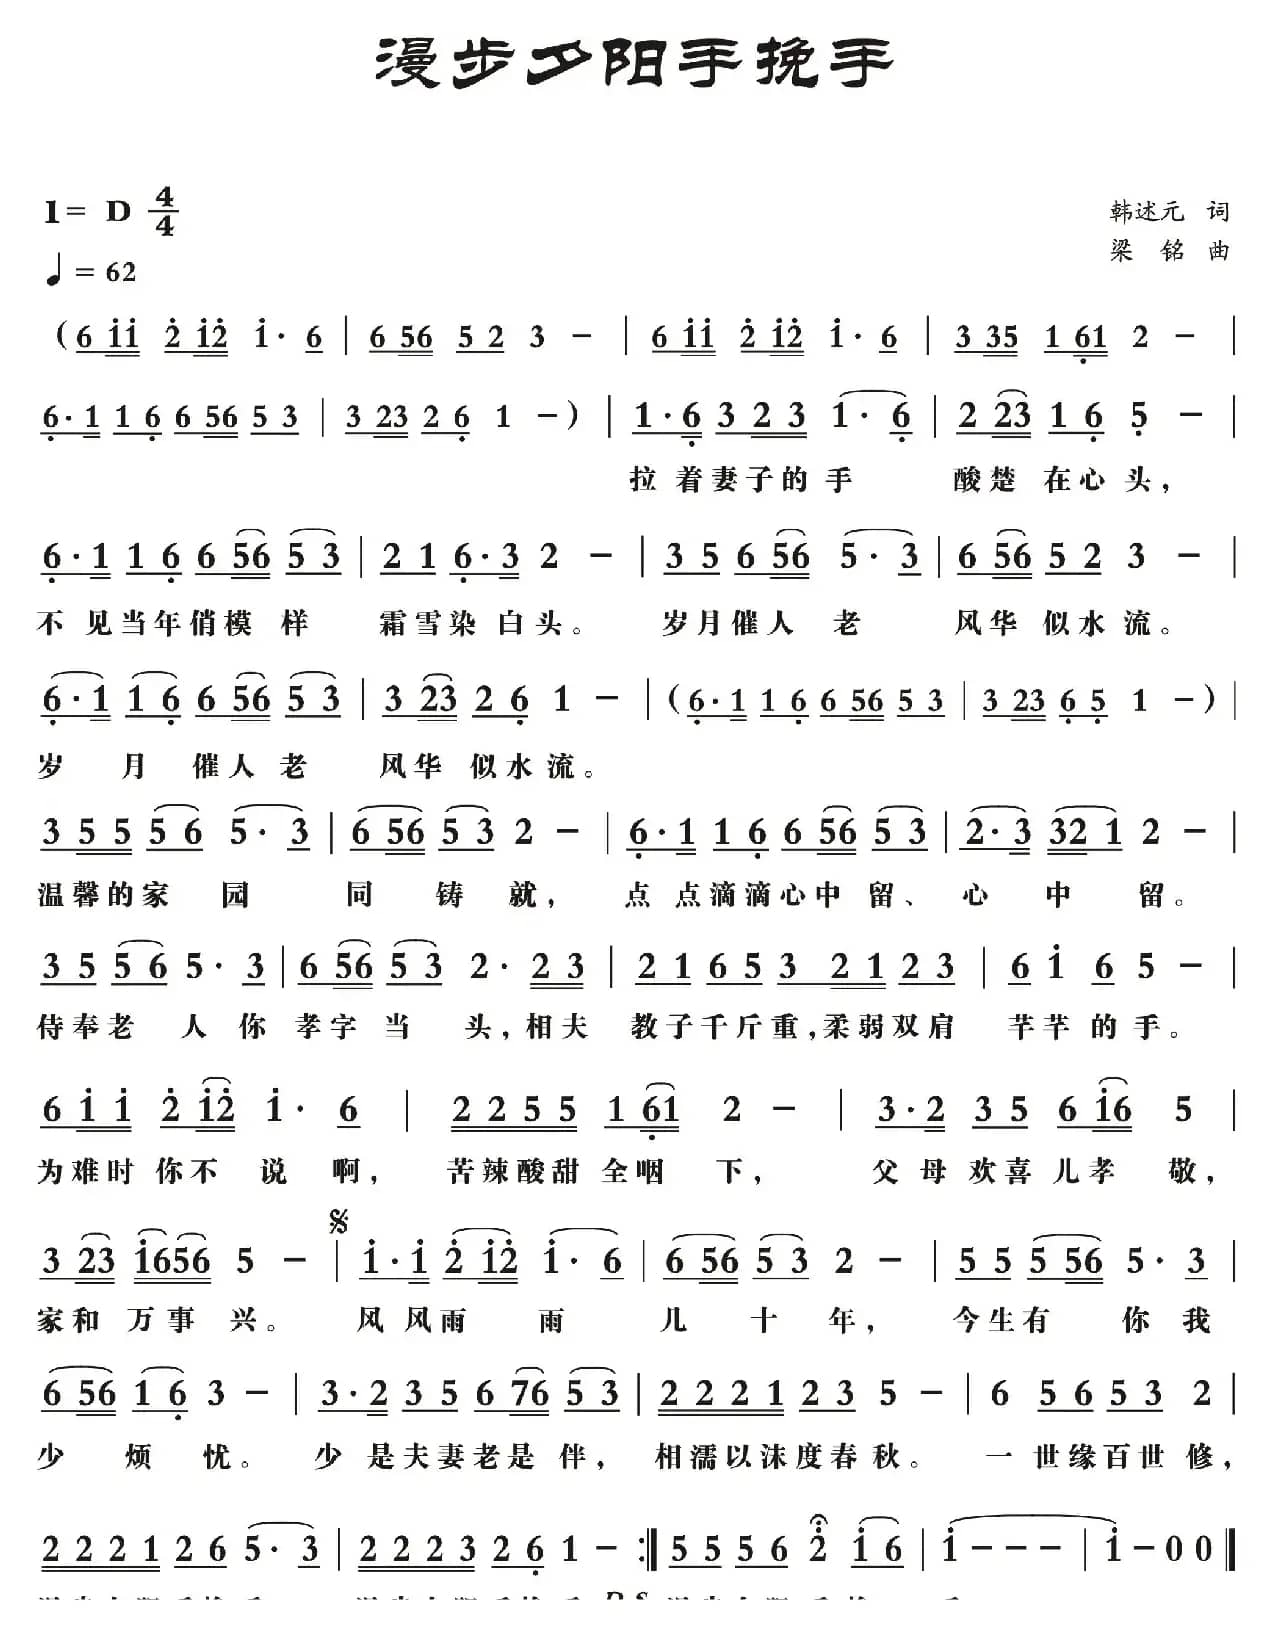 漫步夕阳手挽手
1= D 4/4
韩述元 词
♩= 62
梁 铭 曲
( 6 i i 2 i 2 i · 6 | 6 5 6 5 2 3 - | 6 i i 2 i 2 i · 6 | 3 3 5 1 6 1 2 - |
6 · 1 1 6 6 5 6 5 3 | 3 2 3 2 6 1 - ) | 1 · 6 3 2 3 1 · 6 | 2 2 3 1 6 5 - |
拉 着妻子的 手 酸楚 在心 头,
6 · 1 1 6 6 5 6 5 3 | 2 1 6 · 3 2 - | 3 5 6 5 6 5 · 3 | 6 5 6 5 2 3 - |
不 见当年俏模 样 霜雪染 白头。 岁月催人 老 风华 似水 流。
6 · 1 1 6 6 5 6 5 3 | 3 2 3 2 6 1 - | ( 6 · 1 1 6 6 5 6 5 3 | 3 2 3 6 5 1 - ) |
岁 月 催人 老 风华 似水 流。
3 5 5 5 6 5 · 3 | 6 5 6 5 3 2 - | 6 · 1 1 6 6 5 6 5 3 | 2 · 3 3 2 1 2 - |
温馨的家 园 同 铸 就, 点 点滴滴心中 留、 心 中 留。
3 5 5 6 5 · 3 | 6 5 6 5 3 2 · 2 3 | 2 1 6 5 3 2 1 2 3 | 6 i 6 5 - |
侍奉老 人 你 孝字 当 头,相夫 教子千斤重,柔弱双肩 芊芊 的 手。
6 i i 2 i 2 i · 6 | 2 2 5 5 1 6 1 2 - | 3 · 2 3 5 6 i 6 5 |
为难时 你不 说 啊, 苦辣酸甜 全咽 下, 父 母 欢喜 儿孝 敬,
3 2 3 i 6 5 6 5 - | i · i 2 i 2 i · 6 | 6 5 6 5 3 2 - | 5 5 5 5 6 5 · 3 |
家和 万事 兴。 风 风雨 雨 几 十 年, 今生有 你 我
6 5 6 1 6 3 - | 3 · 2 3 5 6 7 6 5 3 | 2 2 2 1 2 3 5 - | 6 5 6 5 3 2 |
少 烦 忧。 少 是夫妻老是 伴, 相濡以沫度春秋。 一 世缘百世 修,
2 2 2 1 2 6 5 · 3 | 2 2 2 3 2 6 1 - :| 5 5 5 6 2 i 6 | i - - - | i - 0 0 |